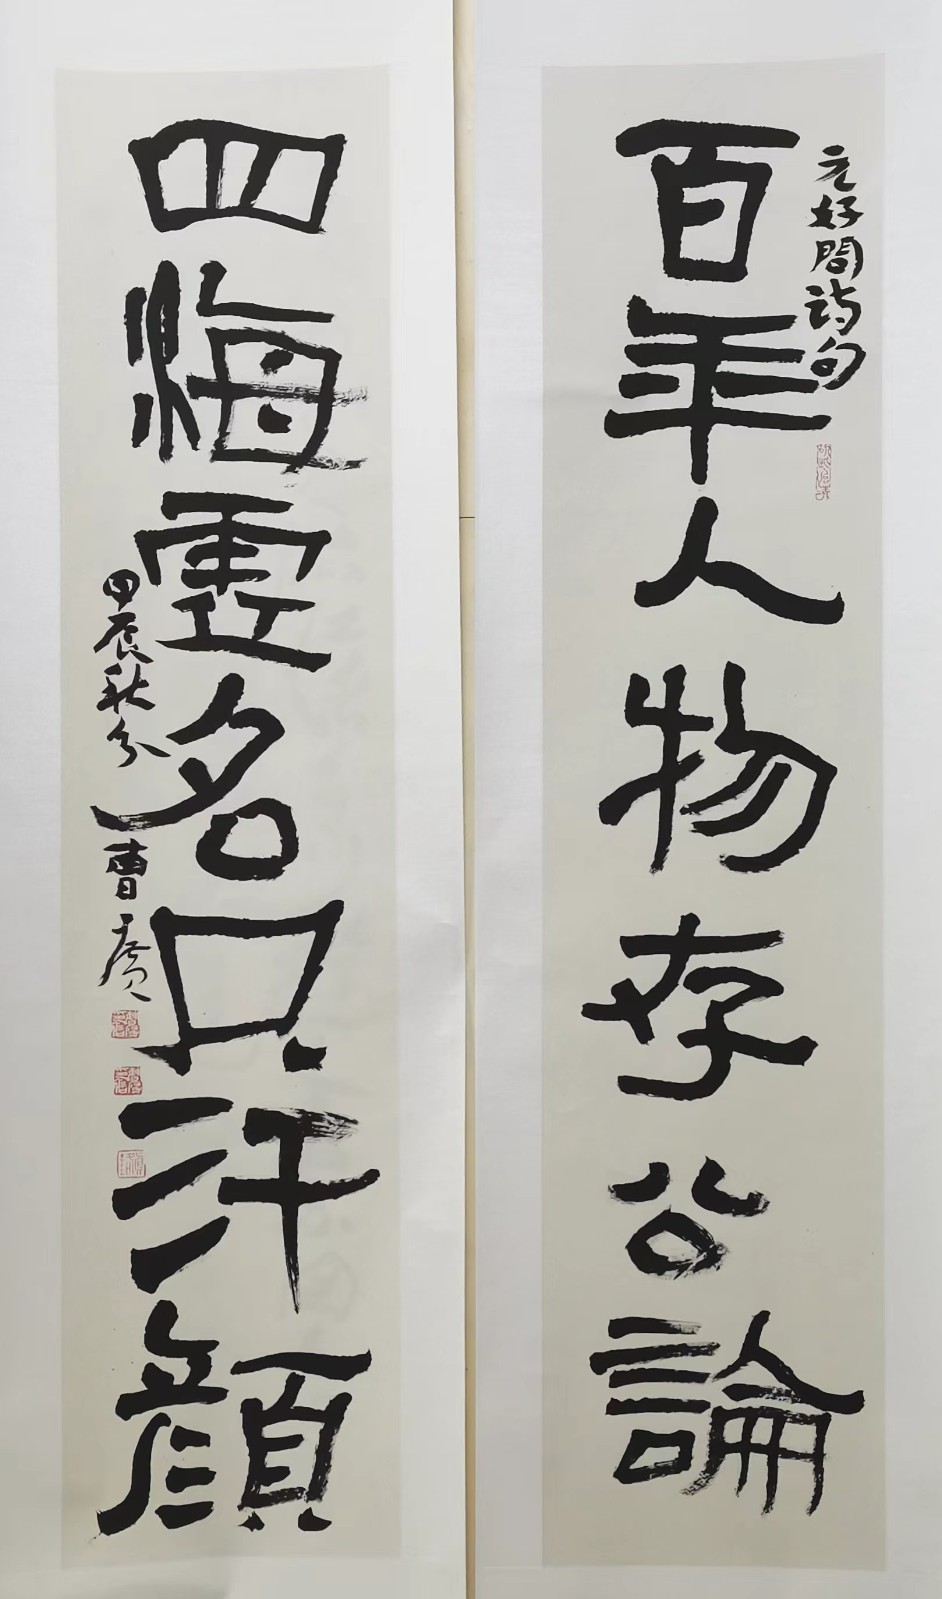 百年人物存公論
元好問詩句
四海虛名只汗顔
甲辰秋分
曹廣